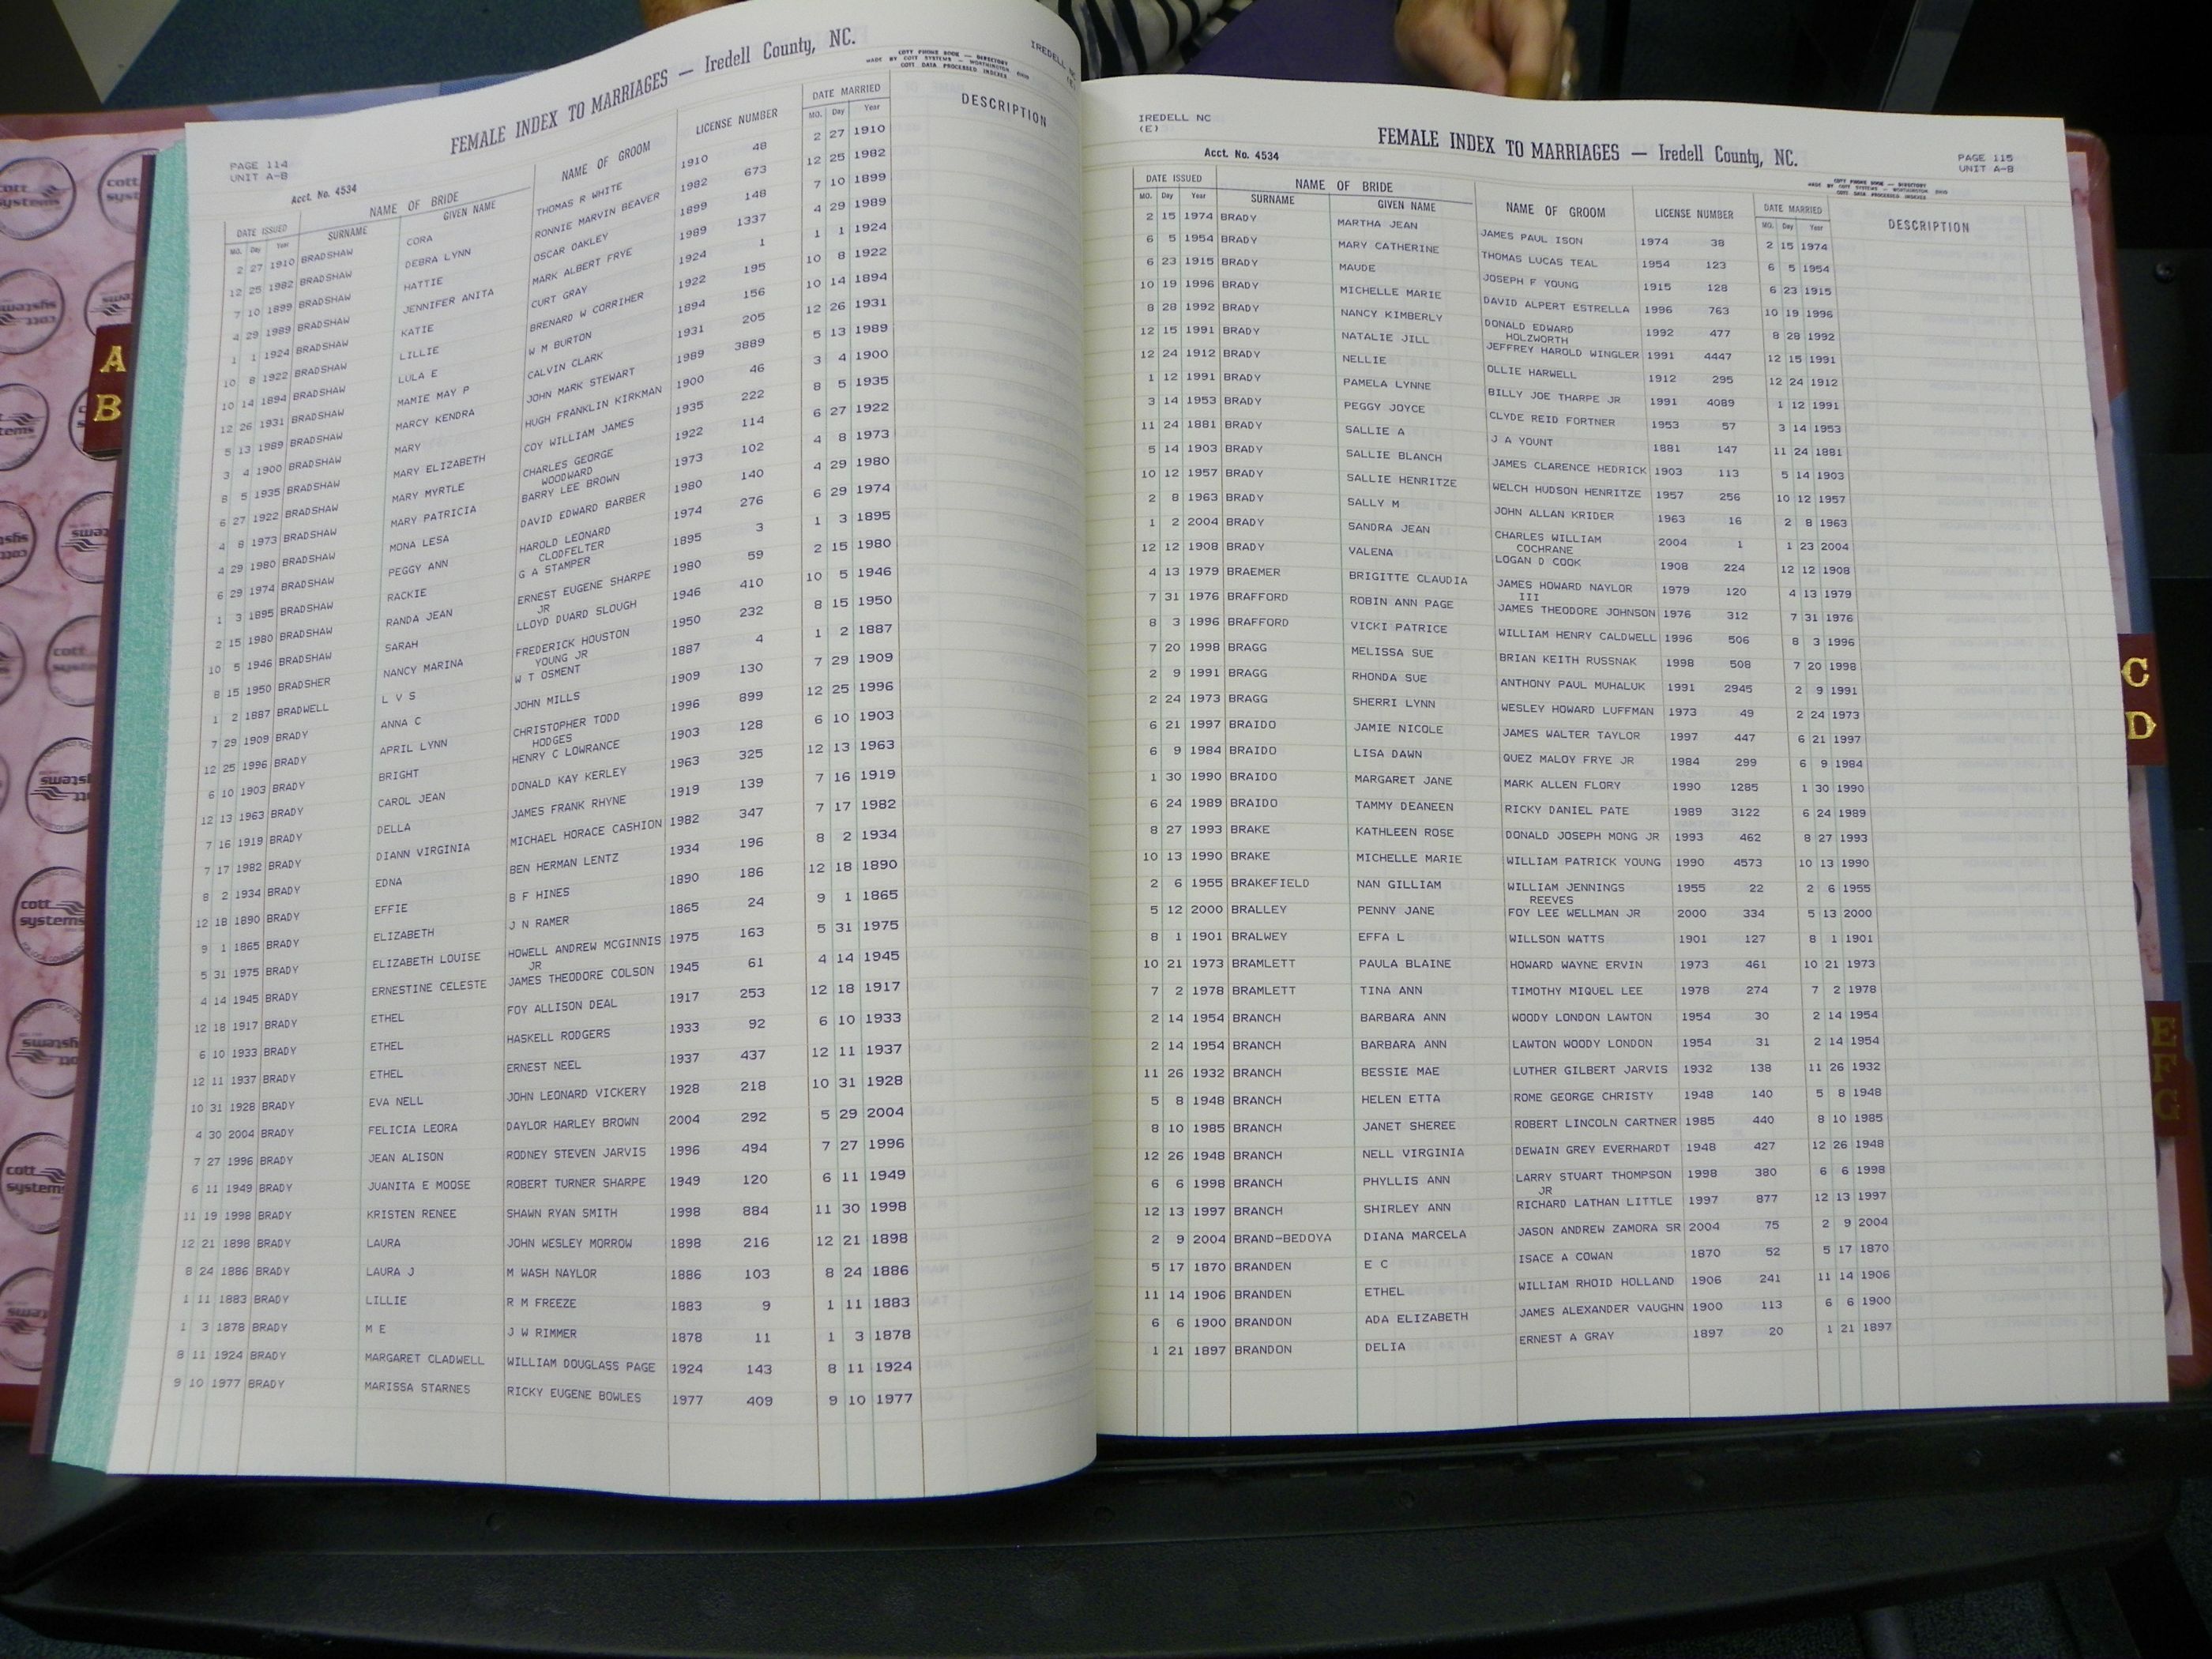 FEMALE INDEX TO MARRIAGES — Iredell County, NC.
PAGE 114
UNIT A-B
Acct. No. 4534
MADE BY COTT SYSTEMS — WORTHINGTON OHIO
COTT DATA PROCESSED INDEXES
IREDELL NC
(E)
DATE ISSUED NAME OF BRIDE NAME OF GROOM LICENSE NUMBER DATE MARRIED DESCRIPTION
MO. Day Year SURNAME GIVEN NAME MO. Day Year
2 27 1910 BRADSHAW CORA THOMAS R WHITE 1910 48 2 27 1910
12 25 1982 BRADSHAW DEBRA LYNN RONNIE MARVIN BEAVER 1982 673 12 25 1982
7 10 1899 BRADSHAW HATTIE OSCAR OAKLEY 1899 148 7 10 1899
4 29 1989 BRADSHAW JENNIFER ANITA MARK ALBERT FRYE 1989 1337 4 29 1989
1 1 1924 BRADSHAW KATIE CURT GRAY 1924 1 1 1 1924
10 8 1922 BRADSHAW LILLIE BRENARD W CORRIHER 1922 195 10 8 1922
10 14 1894 BRADSHAW LULA E W M BURTON 1894 156 10 14 1894
12 26 1931 BRADSHAW MAMIE MAY P CALVIN CLARK 1931 205 12 26 1931
5 13 1989 BRADSHAW MARCY KENDRA JOHN MARK STEWART 1989 3889 5 13 1989
3 4 1900 BRADSHAW MARY HUGH FRANKLIN KIRKMAN 1900 46 3 4 1900
8 5 1935 BRADSHAW MARY ELIZABETH COY WILLIAM JAMES 1935 222 8 5 1935
6 27 1922 BRADSHAW MARY MYRTLE CHARLES GEORGE 1922 114 6 27 1922
WOODWARD
4 8 1973 BRADSHAW MARY PATRICIA BARRY LEE BROWN 1973 102 4 8 1973
4 29 1980 BRADSHAW MONA LESA DAVID EDWARD BARBER 1980 140 4 29 1980
6 29 1974 BRADSHAW PEGGY ANN HAROLD LEONARD 1974 276 6 29 1974
CLODFELTER
1 3 1895 BRADSHAW RACKIE G A STAMPER 1895 3 1 3 1895
2 15 1980 BRADSHAW RANDA JEAN ERNEST EUGENE SHARPE 1980 59 2 15 1980
JR
10 5 1946 BRADSHAW SARAH LLOYD DUARD SLOUGH 1946 410 10 5 1946
8 15 1950 BRADSHER NANCY MARINA FREDERICK HOUSTON 1950 232 8 15 1950
YOUNG JR
1 2 1887 BRADWELL L V S W T OSMENT 1887 4 1 2 1887
7 29 1909 BRADY ANNA C JOHN MILLS 1909 130 7 29 1909
12 25 1996 BRADY APRIL LYNN CHRISTOPHER TODD 1996 899 12 25 1996
HODGES
6 10 1903 BRADY BRIGHT HENRY C LOWRANCE 1903 128 6 10 1903
12 13 1963 BRADY CAROL JEAN DONALD KAY KERLEY 1963 325 12 13 1963
7 16 1919 BRADY DELLA JAMES FRANK RHYNE 1919 139 7 16 1919
7 17 1982 BRADY DIANN VIRGINIA MICHAEL HORACE CASHION 1982 347 7 17 1982
8 2 1934 BRADY EDNA BEN HERMAN LENTZ 1934 196 8 2 1934
12 18 1890 BRADY EFFIE B F HINES 1890 186 12 18 1890
9 1 1865 BRADY ELIZABETH J N RAMER 1865 24 9 1 1865
5 31 1975 BRADY ELIZABETH LOUISE HOWELL ANDREW MCGINNIS 1975 163 5 31 1975
JR
4 14 1945 BRADY ERNESTINE CELESTE JAMES THEODORE COLSON 1945 61 4 14 1945
12 18 1917 BRADY ETHEL FOY ALLISON DEAL 1917 253 12 18 1917
6 10 1933 BRADY ETHEL HASKELL RODGERS 1933 92 6 10 1933
12 11 1937 BRADY ETHEL ERNEST NEEL 1937 437 12 11 1937
10 31 1928 BRADY EVA NELL JOHN LEONARD VICKERY 1928 218 10 31 1928
4 30 2004 BRADY FELICIA LEORA DAYLOR HARLEY BROWN 2004 292 5 29 2004
7 27 1996 BRADY JEAN ALISON RODNEY STEVEN JARVIS 1996 494 7 27 1996
6 11 1949 BRADY JUANITA E MOOSE ROBERT TURNER SHARPE 1949 120 6 11 1949
11 19 1998 BRADY KRISTEN RENEE SHAWN RYAN SMITH 1998 884 11 30 1998
12 21 1898 BRADY LAURA JOHN WESLEY MORROW 1898 216 12 21 1898
8 24 1886 BRADY LAURA J M WASH NAYLOR 1886 103 8 24 1886
1 11 1883 BRADY LILLIE R M FREEZE 1883 9 1 11 1883
1 3 1878 BRADY M E J W RIMMER 1878 11 1 3 1878
8 11 1924 BRADY MARGARET CLADWELL WILLIAM DOUGLASS PAGE 1924 143 8 11 1924
9 10 1977 BRADY MARISSA STARNES RICKY EUGENE BOWLES 1977 409 9 10 1977
IREDELL NC
(E)
FEMALE INDEX TO MARRIAGES — Iredell County, NC.
Acct. No. 4534
PAGE 115
UNIT A-B
DATE ISSUED NAME OF BRIDE NAME OF GROOM LICENSE NUMBER DATE MARRIED DESCRIPTION
MO. Day Year SURNAME GIVEN NAME MO. Day Year
2 15 1974 BRADY MARTHA JEAN JAMES PAUL ISON 1974 38 2 15 1974
6 5 1954 BRADY MARY CATHERINE THOMAS LUCAS TEAL 1954 123 6 5 1954
6 23 1915 BRADY MAUDE JOSEPH F YOUNG 1915 128 6 23 1915
10 19 1996 BRADY MICHELLE MARIE DAVID ALPERT ESTRELLA 1996 763 10 19 1996
8 28 1992 BRADY NANCY KIMBERLY DONALD EDWARD 1992 477 8 28 1992
HOLZWORTH
12 15 1991 BRADY NATALIE JILL JEFFREY HAROLD WINGLER 1991 4447 12 15 1991
12 24 1912 BRADY NELLIE OLLIE HARWELL 1912 295 12 24 1912
1 12 1991 BRADY PAMELA LYNNE BILLY JOE THARPE JR 1991 4089 1 12 1991
3 14 1953 BRADY PEGGY JOYCE CLYDE REID FORTNER 1953 57 3 14 1953
11 24 1881 BRADY SALLIE A J A YOUNT 1881 147 11 24 1881
5 14 1903 BRADY SALLIE BLANCH JAMES CLARENCE HEDRICK 1903 113 5 14 1903
10 12 1957 BRADY SALLIE HENRITZE WELCH HUDSON HENRITZE 1957 256 10 12 1957
2 8 1963 BRADY SALLY M JOHN ALLAN KRIDER 1963 16 2 8 1963
1 2 2004 BRADY SANDRA JEAN CHARLES WILLIAM 2004 1 1 23 2004
COCHRANE
12 12 1908 BRADY VALENA LOGAN D COOK 1908 224 12 12 1908
4 13 1979 BRAEMER BRIGITTE CLAUDIA JAMES HOWARD NAYLOR 1979 120 4 13 1979
III
7 31 1976 BRAFFORD ROBIN ANN PAGE JAMES THEODORE JOHNSON 1976 312 7 31 1976
8 3 1996 BRAFFORD VICKI PATRICE WILLIAM HENRY CALDWELL 1996 506 8 3 1996
7 20 1998 BRAGG MELISSA SUE BRIAN KEITH RUSSNAK 1998 508 7 20 1998
2 9 1991 BRAGG RHONDA SUE ANTHONY PAUL MUHALUK 1991 2945 2 9 1991
2 24 1973 BRAGG SHERRI LYNN WESLEY HOWARD LUFFMAN 1973 49 2 24 1973
6 21 1997 BRAIDO JAMIE NICOLE JAMES WALTER TAYLOR 1997 447 6 21 1997
6 9 1984 BRAIDO LISA DAWN QUEZ MALOY FRYE JR 1984 299 6 9 1984
1 30 1990 BRAIDO MARGARET JANE MARK ALLEN FLORY 1990 1285 1 30 1990
6 24 1989 BRAIDO TAMMY DEANEEN RICKY DANIEL PATE 1989 3122 6 24 1989
8 27 1993 BRAKE KATHLEEN ROSE DONALD JOSEPH MONG JR 1993 462 8 27 1993
10 13 1990 BRAKE MICHELLE MARIE WILLIAM PATRICK YOUNG 1990 4573 10 13 1990
2 6 1955 BRAKEFIELD NAN GILLIAM WILLIAM JENNINGS 1955 22 2 6 1955
REEVES
5 12 2000 BRALLEY PENNY JANE FOY LEE WELLMAN JR 2000 334 5 13 2000
8 1 1901 BRALWEY EFFA L WILLSON WATTS 1901 127 8 1 1901
10 21 1973 BRAMLETT PAULA BLAINE HOWARD WAYNE ERVIN 1973 461 10 21 1973
7 2 1978 BRAMLETT TINA ANN TIMOTHY MIQUEL LEE 1978 274 7 2 1978
2 14 1954 BRANCH BARBARA ANN WOODY LONDON LAWTON 1954 30 2 14 1954
2 14 1954 BRANCH BARBARA ANN LAWTON WOODY LONDON 1954 31 2 14 1954
11 26 1932 BRANCH BESSIE MAE LUTHER GILBERT JARVIS 1932 138 11 26 1932
5 8 1948 BRANCH HELEN ETTA ROME GEORGE CHRISTY 1948 140 5 8 1948
8 10 1985 BRANCH JANET SHEREE ROBERT LINCOLN CARTNER 1985 440 8 10 1985
12 26 1948 BRANCH NELL VIRGINIA DEWAIN GREY EVERHARDT 1948 427 12 26 1948
6 6 1998 BRANCH PHYLLIS ANN LARRY STUART THOMPSON 1998 380 6 6 1998
JR
12 13 1997 BRANCH SHIRLEY ANN RICHARD LATHAN LITTLE 1997 877 12 13 1997
2 9 2004 BRAND-BEDOYA DIANA MARCELA JASON ANDREW ZAMORA SR 2004 75 2 9 2004
5 17 1870 BRANDEN E C ISACE A COWAN 1870 52 5 17 1870
11 14 1906 BRANDEN ETHEL WILLIAM RHOID HOLLAND 1906 241 11 14 1906
6 6 1900 BRANDON ADA ELIZABETH JAMES ALEXANDER VAUGHN 1900 113 6 6 1900
1 21 1897 BRANDON DELIA ERNEST A GRAY 1897 20 1 21 1897
A
B
C
D
E
F
G
cott
systems